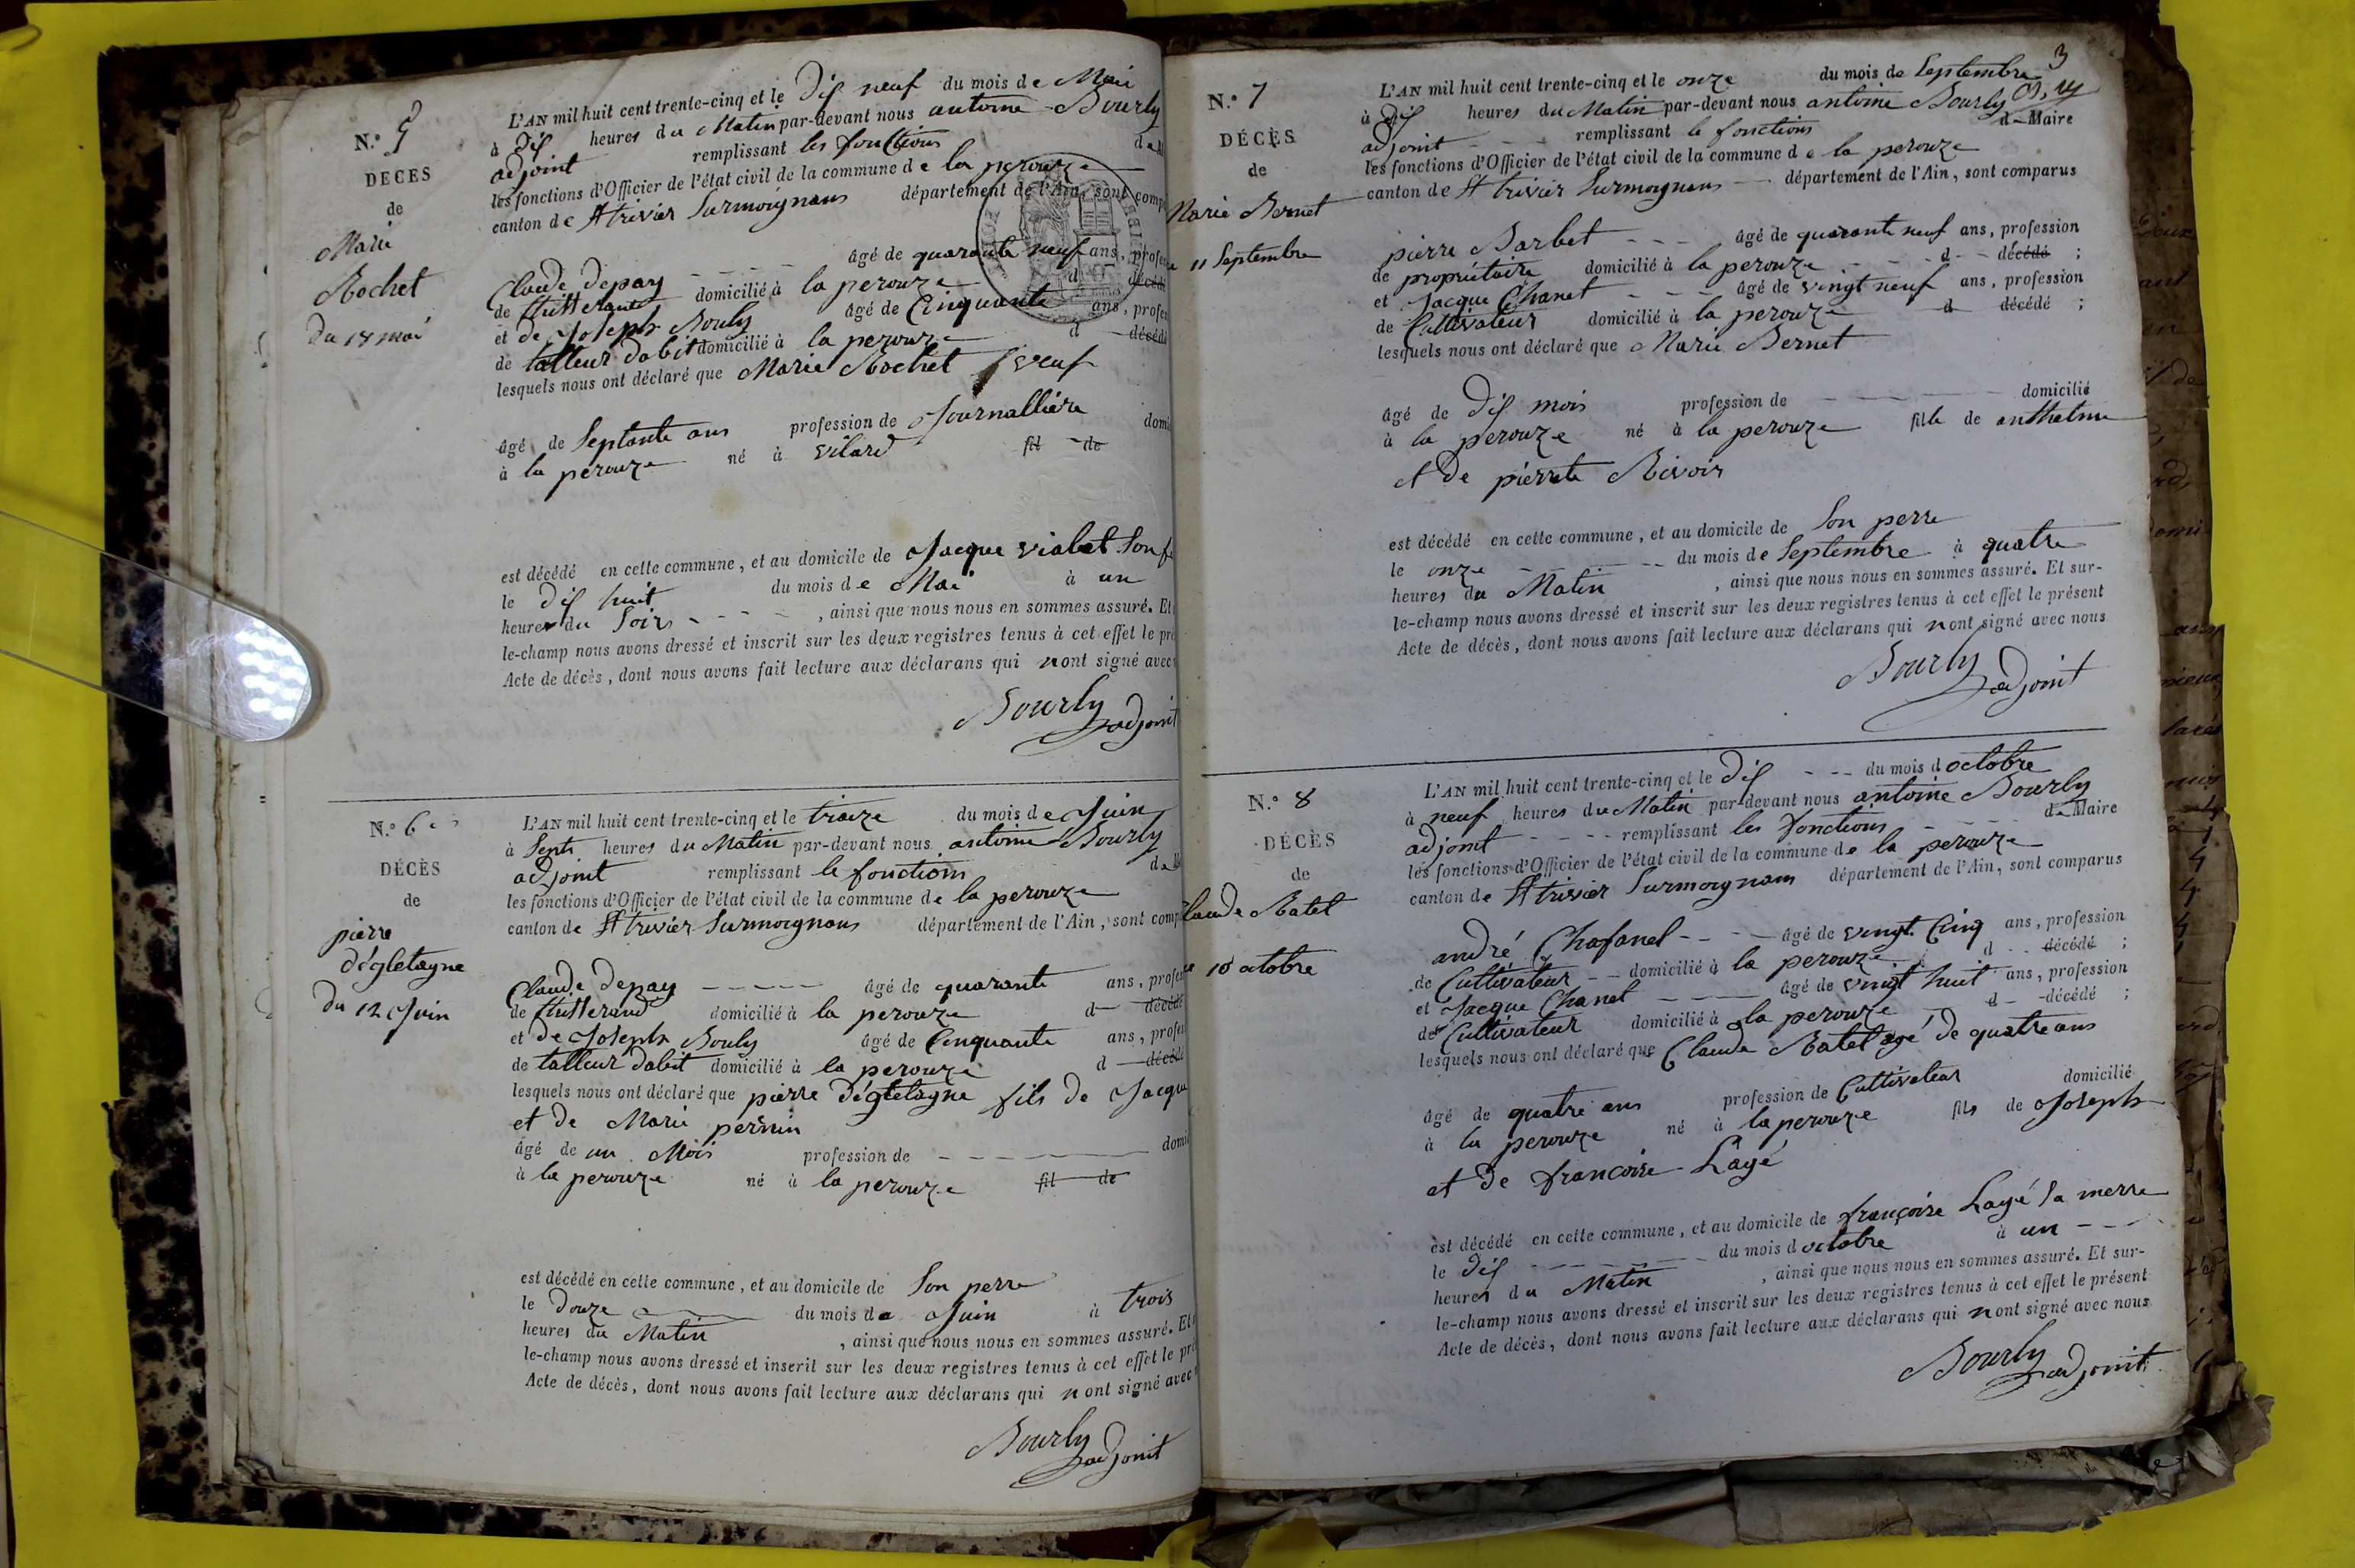 N.° 5
DÉCÈS
de
Marie
Rochet
du 18 mai
L'AN mil huit cent trente-cinq et le Dix neuf du mois de Mai
à Dix heures du Matin par-devant nous antoine Bourly
adjoint remplissant les fonctions de
les fonctions d'Officier de l'état civil de la commune de la perouze
canton de St trivier Surmoignans département de l'Ain, sont comp
Claude Depay âgé de quarante neuf ans, profes
de domicilié à la perouze d décédé
et de Joseph Bouly âgé de Cinquante ans, profes
de tailleur dabit domicilié à la perouze d décédé
lesquels nous ont déclaré que Marie Rochet veuf
âgé de Septante ans profession de Journallière domi
à la perouze né à vilard fil de
est décédé en cette commune, et au domicile de Jacque vialet Son f
le dix huit du mois de Mai à un
heures du Soir, ainsi que nous nous en sommes assuré. Et
le-champ nous avons dressé et inscrit sur les deux registres tenus à cet effet le pré
Acte de décès, dont nous avons fait lecture aux déclarans qui nont signé avec
Bourly
adjoint
N.° 6
DÉCÈS
de
pierre
dégletagne
du 12 Juin
L'AN mil huit cent trente-cinq et le treize du mois de Juin
à Sept heures du Matin par-devant nous antoine Bourly
adjoint remplissant le fonctions de
les fonctions d'Officier de l'état civil de la commune de la perouze
canton de St trivier Surmoignans département de l'Ain, sont comp
Claude Depay âgé de quarante ans, profes
de domicilié à la perouze d décédé
et de Joseph Bouly âgé de Cinquante ans, profes
de talleur dabit domicilié à la perouze d décédé
lesquels nous ont déclaré que pierre dégletagne fils de Jacque
et de Marie perrin
âgé de un Mois profession de domi
à la perouze né à la perouze fil de
est décédé en cette commune, et au domicile de Son perre
le Douze du mois de Juin à trois
heures du Matin, ainsi que nous nous en sommes assuré. Et
le-champ nous avons dressé et inscrit sur les deux registres tenus à cet effet le pré
Acte de décès, dont nous avons fait lecture aux déclarans qui nont signé avec
Bourly
adjoint
3
N.° 7
DÉCÈS
de
Marie Bernet
11 Septembre
L'AN mil huit cent trente-cinq et le onze du mois de Septembre
à dix heures du Matin par-devant nous antoine Bourly
adjoint remplissant le fonctions de Maire
les fonctions d'Officier de l'état civil de la commune de la perouze
canton de St trivier Surmoignans département de l'Ain, sont comparus
pierre Barbet âgé de quarante neuf ans, profession
de propriétaire domicilié à la perouze d décédé ;
et Jacque Chanel âgé de vingt neuf ans, profession
de Cultivateur domicilié à la perouze d décédé ;
lesquels nous ont déclaré que Marie Bernet
âgé de Dix mois profession de domicilié
à la perouze né à la perouze fille de anthelme
et de pierrete Rivoir
est décédé en cette commune, et au domicile de Son perre
le onze du mois de Septembre à quatre
heures du Matin, ainsi que nous nous en sommes assuré. Et sur-
le-champ nous avons dressé et inscrit sur les deux registres tenus à cet effet le présent
Acte de décès, dont nous avons fait lecture aux déclarans qui nont signé avec nous
Bourly
adjoint
N.° 8
DÉCÈS
de
Claude Ratel
10 octobre
L'AN mil huit cent trente-cinq et le Dix du mois d octobre
à neuf heures du Matin par-devant nous antoine Bourly
adjoint remplissant les fonctions de Maire
les fonctions d'Officier de l'état civil de la commune de la perouze
canton de St trivier Surmoignans département de l'Ain, sont comparus
andré Chafanel âgé de vingt Cinq ans, profession
de Cultivateur domicilié à la perouze d décédé ;
et Jacque Chanel âgé de vingt huit ans, profession
de Cultivateur domicilié à la perouze d décédé ;
lesquels nous ont déclaré que Claude Ratel agé de quatre ans
âgé de quatre ans profession de Cultivateur domicilié
à la perouze né à la perouze fils de Joseph
et de francoise Layé
est décédé en cette commune, et au domicile de françoise Layé Sa merre
le Dix du mois d octobre à un
heures du Matin, ainsi que nous nous en sommes assuré. Et sur-
le-champ nous avons dressé et inscrit sur les deux registres tenus à cet effet le présent
Acte de décès, dont nous avons fait lecture aux déclarans qui nont signé avec nous
Bourly
adjoint